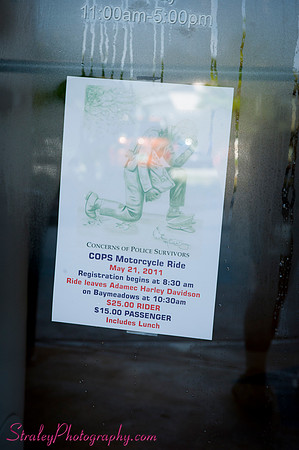 11:00am-5:00pm
CONCERNS OF POLICE SURVIVORS
COPS Motorcycle Ride
May 21, 2011
Registration begins at 8:30 am
Ride leaves Adamec Harley Davidson
on Baymeadows at 10:30am
$25.00 RIDER
$15.00 PASSENGER
Includes Lunch
StraleyPhotography.com